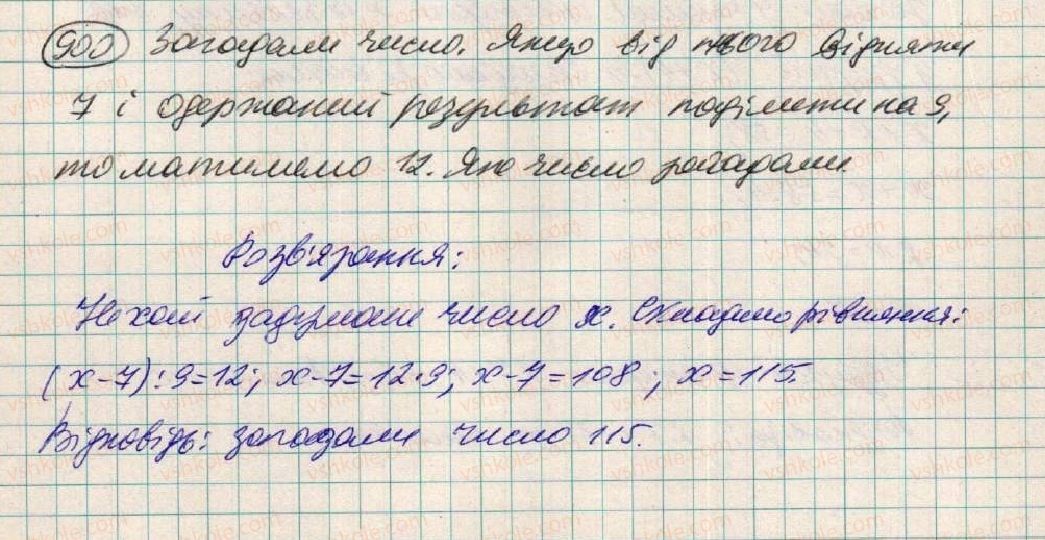 900 Загадали число. Якщо від нього відняти
7 і одержаний результат поділити на 9,
то матимемо 12. Яке число загадали.
Розв'язання:
Нехай задумали число х. Складемо рівняння:
(х-7):9=12; х-7=12·9; х-7=108; х=115.
Відповідь: загадали число 115.